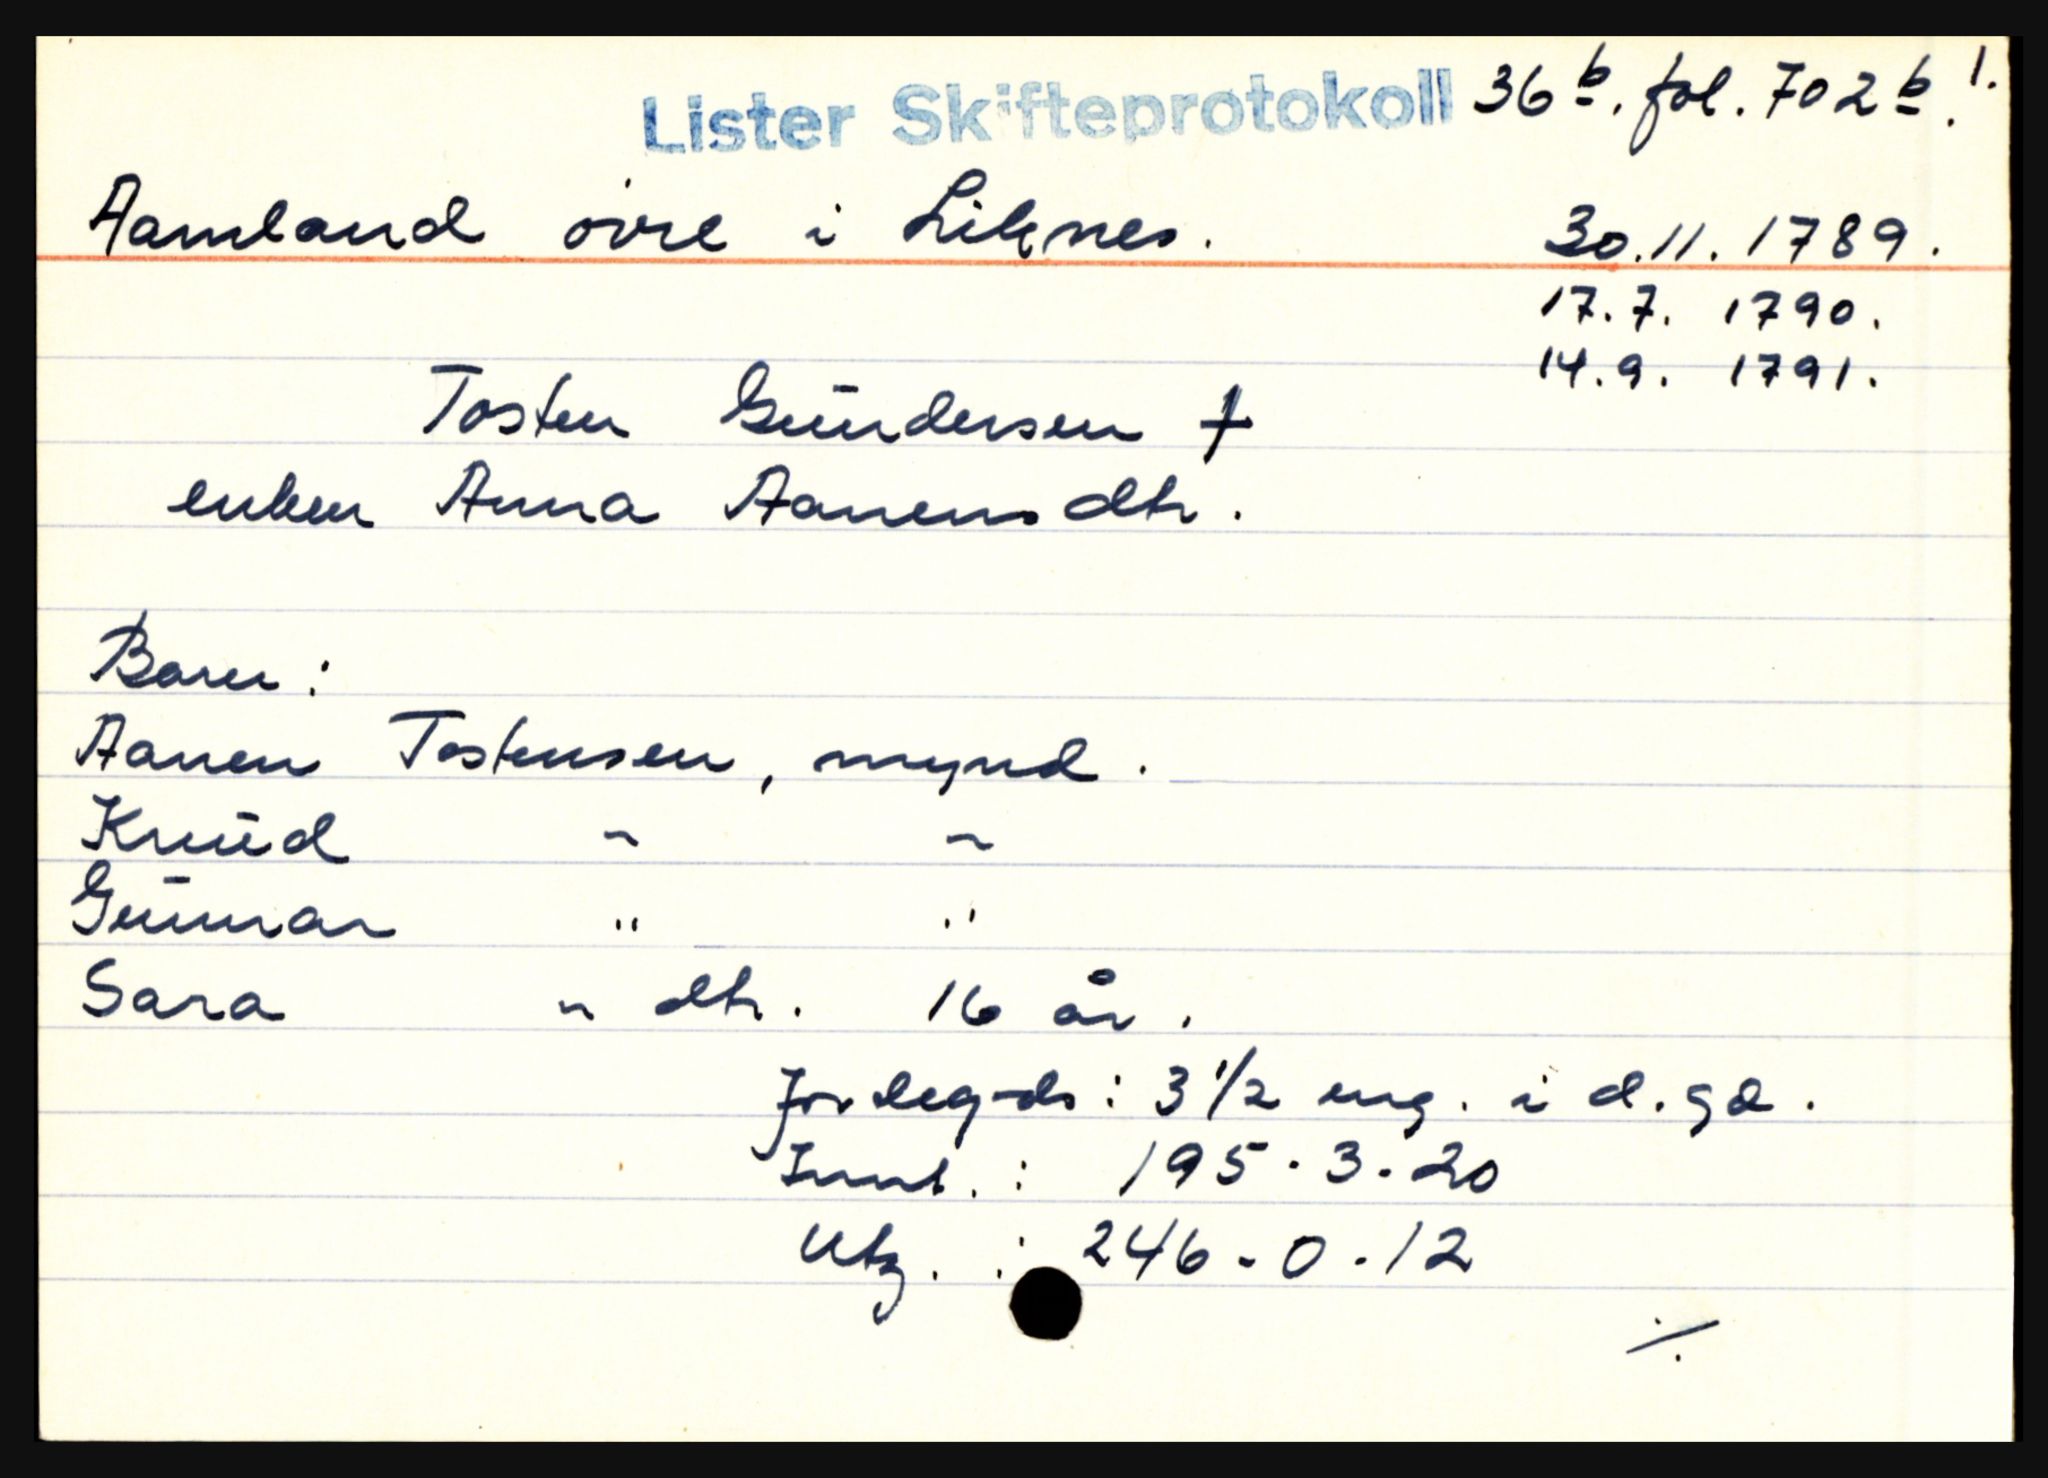 Lister Skifteprotokoll 36 b. fol. 702 b. 1.
Aamland övre i Liknes. 30.11.1789.
17.7. 1790.
14.9. 1791.
Tosten Gundersen †
enken Anna Aanensdtr.
Barn:
Aanen Tostensen, mynd.
Knud " "
Gunnar " "
Sara " dtr. 16 år.
Jordeg-ds: 3 1/2 eng. i d. gd.
Innt. : 195 - 3 - 20
Utg. : 246 - 0 - 12
./.